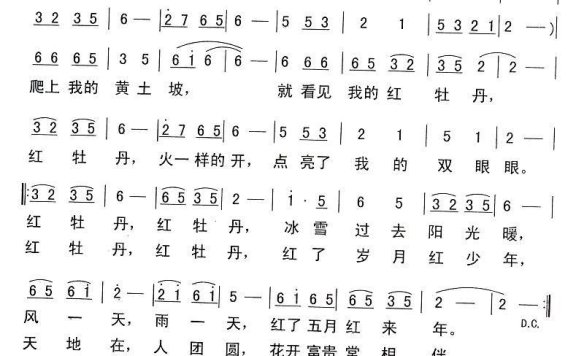 3 2 3 5 | 6 — | 2 7 6 5 | 6 — | 5 5 3 | 2 1 | 5 3 2 1 | 2 — )|
6 6 6 5 | 3 5 | 6 i 6 | 6 — | 6 6 6 | 6 5 3 2 | 3 5 2 | 2 — |
爬上 我的 黄 土 坡, 就 看见 我的 红 牡 丹,
3 2 3 5 | 6 — | 2 7 6 5 | 6 — | 5 5 3 | 2 1 | 5 1 | 2 — |
红 牡 丹, 火一 样的 开, 点 亮了 我 的 双 眼 眼。
‖: 3 2 3 5 | 6 — | 6 5 3 5 | 2 — | i · 5 | 6 5 | 3 2 3 5 | 6 — |
红 牡 丹, 红 牡 丹, 冰 雪 过 去 阳 光 暖,
红 牡 丹, 红 牡 丹, 红 了 岁 月 红 少 年,
6 5 6 i | 2 — | 2 i 6 i | 5 — | 6 i 6 5 | 6 5 3 5 | 2 — | 2 — :‖
D.C.
风 一 天, 雨 一 天, 红了 五月 红 来 年。
天 地 在, 人 团 圆, 花开 富贵 常 相 伴